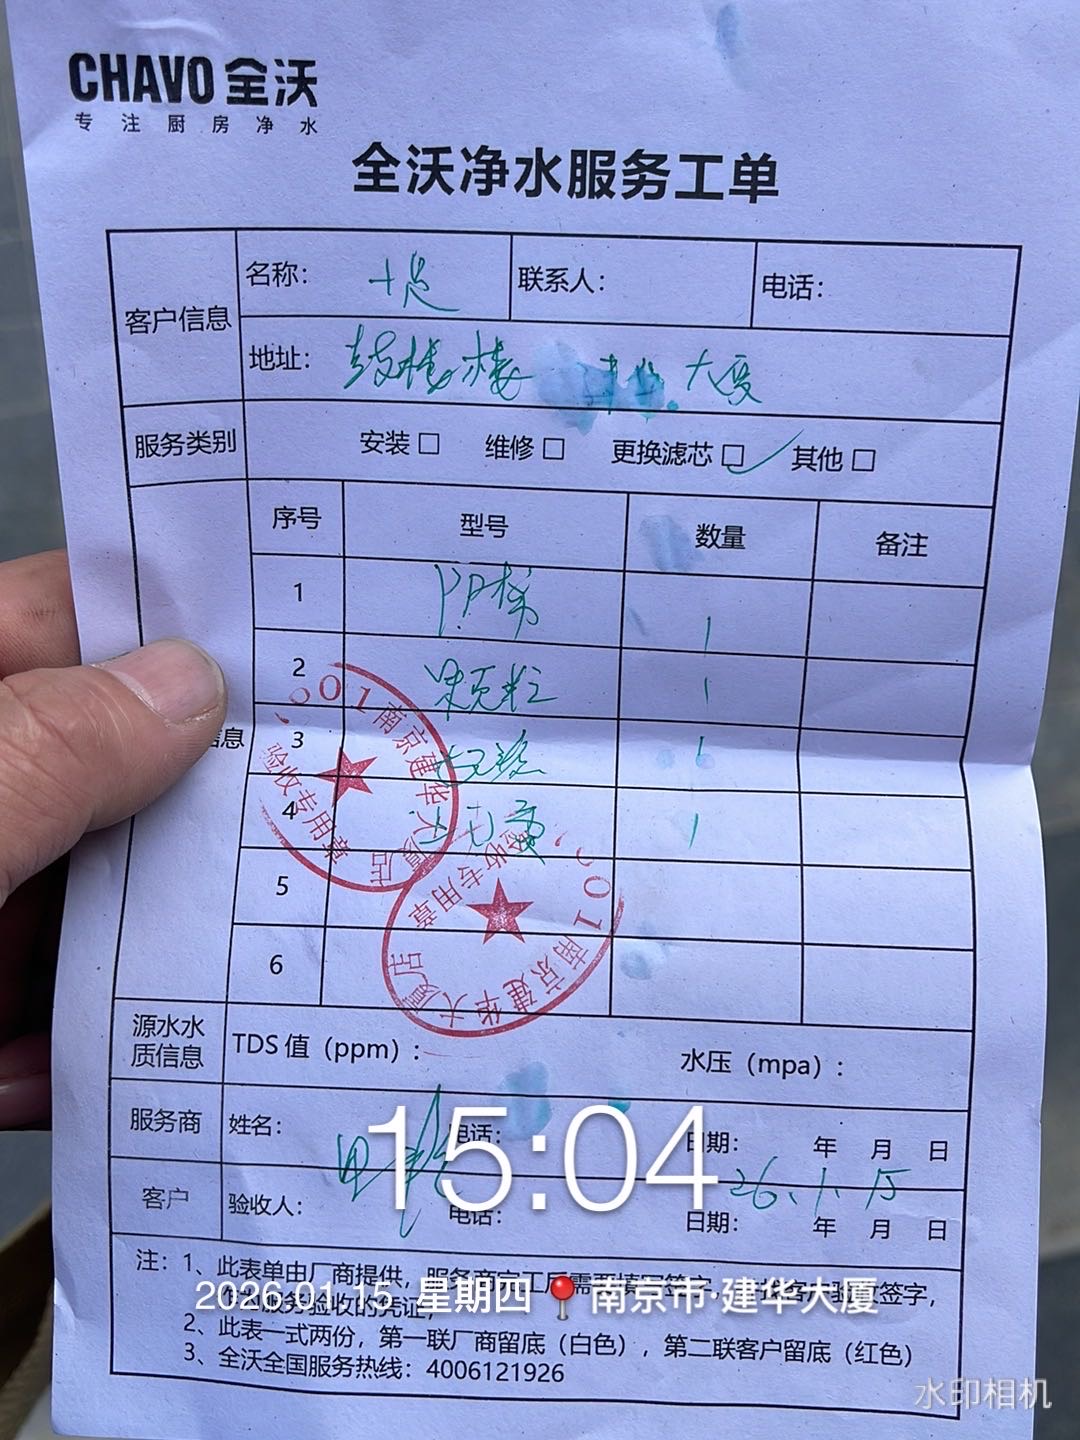 CHAVO 全沃
专注厨房净水
全沃净水服务工单
客户信息
名称：
联系人：
电话：
地址： 大厦
服务类别
安装□ 维修□ 更换滤芯□ 其他□
序号 型号 数量 备注
1 PP棉 1
2 颗粒 1
3
4 1
5
6
信息
001南京建华大厦店
验收专用章
001南京建华大厦店
验收专用章
源水水质信息
TDS值（ppm）：
水压（mpa）：
服务商
姓名： 电话： 日期： 年 月 日
26.1.15
客户
验收人： 电话： 日期： 年 月 日
15:04
注：1、此表单由厂商提供，
服务验收的凭证，
2、此表一式两份，第一联厂商留底（白色），第二联客户留底（红色）
3、全沃全国服务热线：4006121926
2026.01.15 星期四 南京市·建华大厦
水印相机